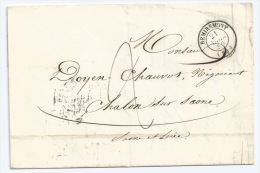 REMIREMONT
21
Monsieur
Doyen Chauvot, Négociant
Chalon sur Saône
Saone et Loire
2